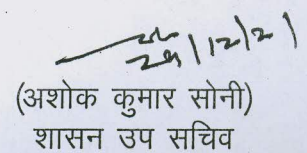 29/12/21
(अशोक कुमार सोनी)
शासन उप सचिव